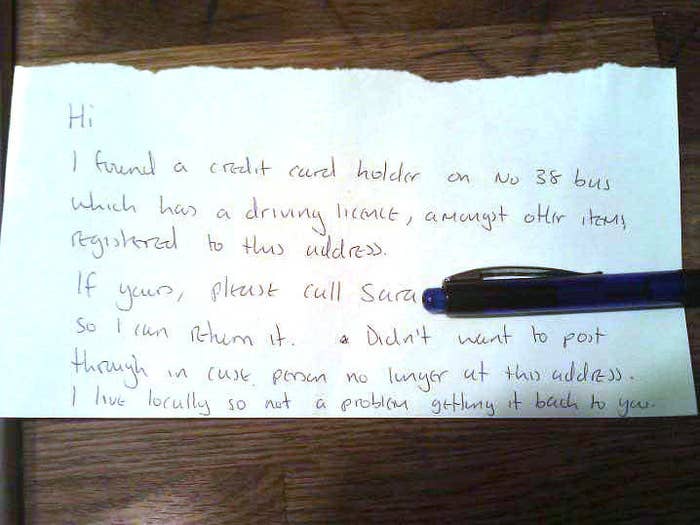 Hi
I found a credit card holder on No 38 bus
which has a driving licence, amongst other items,
registered to this address.
If yours, please call Sara
so I can return it. Didn't want to post
through in case person no longer at this address.
I live locally so not a problem getting it back to you.